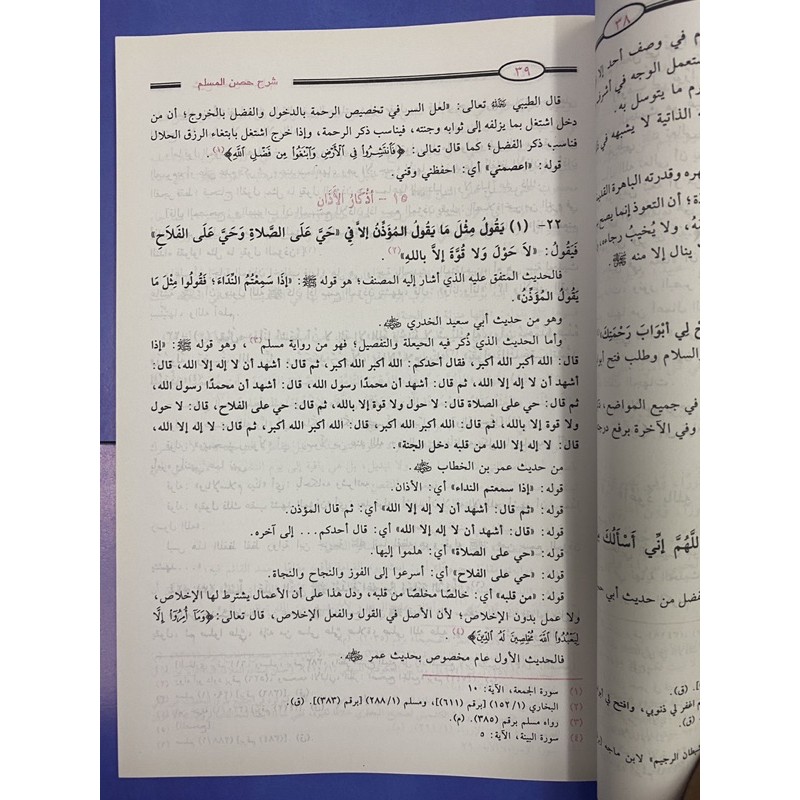 ٣٩
شرح حصن المسلم
قال الطيبي ﵀ تعالى: «لعل السر في تخصيص الرحمة بالدخول والفضل بالخروج؛ أن من
دخل اشتغل بما يزلفه إلى ثوابه وجنته، فيناسب ذكر الرحمة، وإذا خرج اشتغل بابتغاء الرزق الحلال
فناسب ذكر الفضل؛ كما قال تعالى: ﴿فَانتَشِرُوا فِي الْأَرْضِ وَابْتَغُوا مِن فَضْلِ اللَّهِ﴾(١).
قوله: «اعصمني» أي: احفظني وقني.
١٥ - أَذْكَارُ الأَذَان
٢٢- (١) يَقُولُ مِثْلَ مَا يَقُولُ المُؤَذِّنُ إلاَّ فِي «حَيَّ عَلَى الصَّلاةِ وَحَيَّ عَلَى الفَلاَحِ»
فَيَقُولُ: «لاَ حَوْلَ وَلا قُوَّةَ إلاَّ باللهِ»(٢).
فالحديث المتفق عليه الذي أشار إليه المصنف؛ هو قوله ﷺ: «إِذَا سَمِعْتُمُ النِّدَاءَ؛ فَقُولُوا مِثْلَ مَا
يَقُولُ المُؤَذِّنُ».
وهو من حديث أبي سعيد الخدري ﵁.
وأما الحديث الذي ذُكر فيه الحيعلة والتفصيل؛ فهو من رواية مسلم(٣)، وهو قوله ﷺ: «إذا
قال: الله أكبر الله أكبر، فقال أحدكم: الله أكبر الله أكبر، ثم قال: أشهد أن لا إله إلا الله، قال:
أشهد أن لا إله إلا الله، ثم قال: أشهد أن محمدًا رسول الله، قال: أشهد أن محمدًا رسول الله،
ثم قال: حي على الصلاة قال: لا حول ولا قوة إلا بالله، ثم قال: حي على الفلاح، قال: لا حول
ولا قوة إلا بالله، ثم قال: الله أكبر الله أكبر، قال: الله أكبر الله أكبر، ثم قال: لا إله إلا الله،
قال: لا إله إلا الله من قلبه دخل الجنة».
من حديث عمر بن الخطاب ﵁.
قوله: «إذا سمعتم النداء» أي: الأذان.
قوله: «ثم قال: أشهد أن لا إله إلا الله» أي: ثم قال المؤذن.
قوله: «قال: أشهد أن لا إله إلا الله» أي: قال أحدكم... إلى آخره.
قوله: «حي على الصلاة» أي: هلموا إليها.
قوله: «حي على الفلاح» أي: أسرعوا إلى الفوز والنجاح والنجاة.
قوله: «من قلبه» أي: خالصًا مخلصًا من قلبه، ودل هذا على أن الأعمال يشترط لها الإخلاص،
ولا عمل بدون الإخلاص؛ لأن الأصل في القول والفعل الإخلاص، قال تعالى: ﴿وَمَا أُمِرُوا إِلَّا
لِيَعْبُدُوا اللَّهَ مُخْلِصِينَ لَهُ الدِّينَ﴾(٤).
فالحديث الأول عام مخصوص بحديث عمر ﵁.
(١) سورة الجمعة، الآية: ١٠
(٢) البخاري (١/ ١٥٢) [برقم (٦١١)]، ومسلم (١/ ٢٨٨) [برقم (٣٨٣)]. (ق).
(٣) رواه مسلم برقم (٣٨٥). (م).
(٤) سورة البينة، الآية: ٥
٣٨
م في وصف أحد إلا
ستعمل الوجه في أشرف
رم ما يتوسل به.
ة الذاتية لا يشبهه في
هره وقدرته الباهرة
ة؛ أن التعوذ إنما يصح
هُ، ولا يُخيبُ رجاءه،
لا ينال إلا منه ﷻ.
حْ لِي أَبْوَابَ رَحْمَتِكَ
والسلام وطلب فتح
في جميع المواضع،
وفي الآخرة برفع
للَّهُمَّ إِنِّي أَسْأَلُكَ
فضل من حديث أبي
)]. (ق).
م اغفر لي ذنوبي، وافتح لي
(ق).
شيطان الرجيم» لابن ماجه